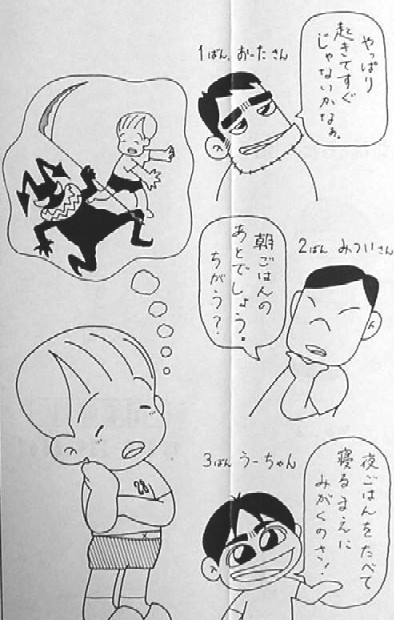 1ばん おーたさん
やっぱり
起きてすぐ
じゃないかなぁ。
2ばん みついさん
朝ごはんの
あとでしょう。
ちがう?
3ばん うーちゃん
夜ごはんをたべて
寝るまえに
みがくのさ!
28